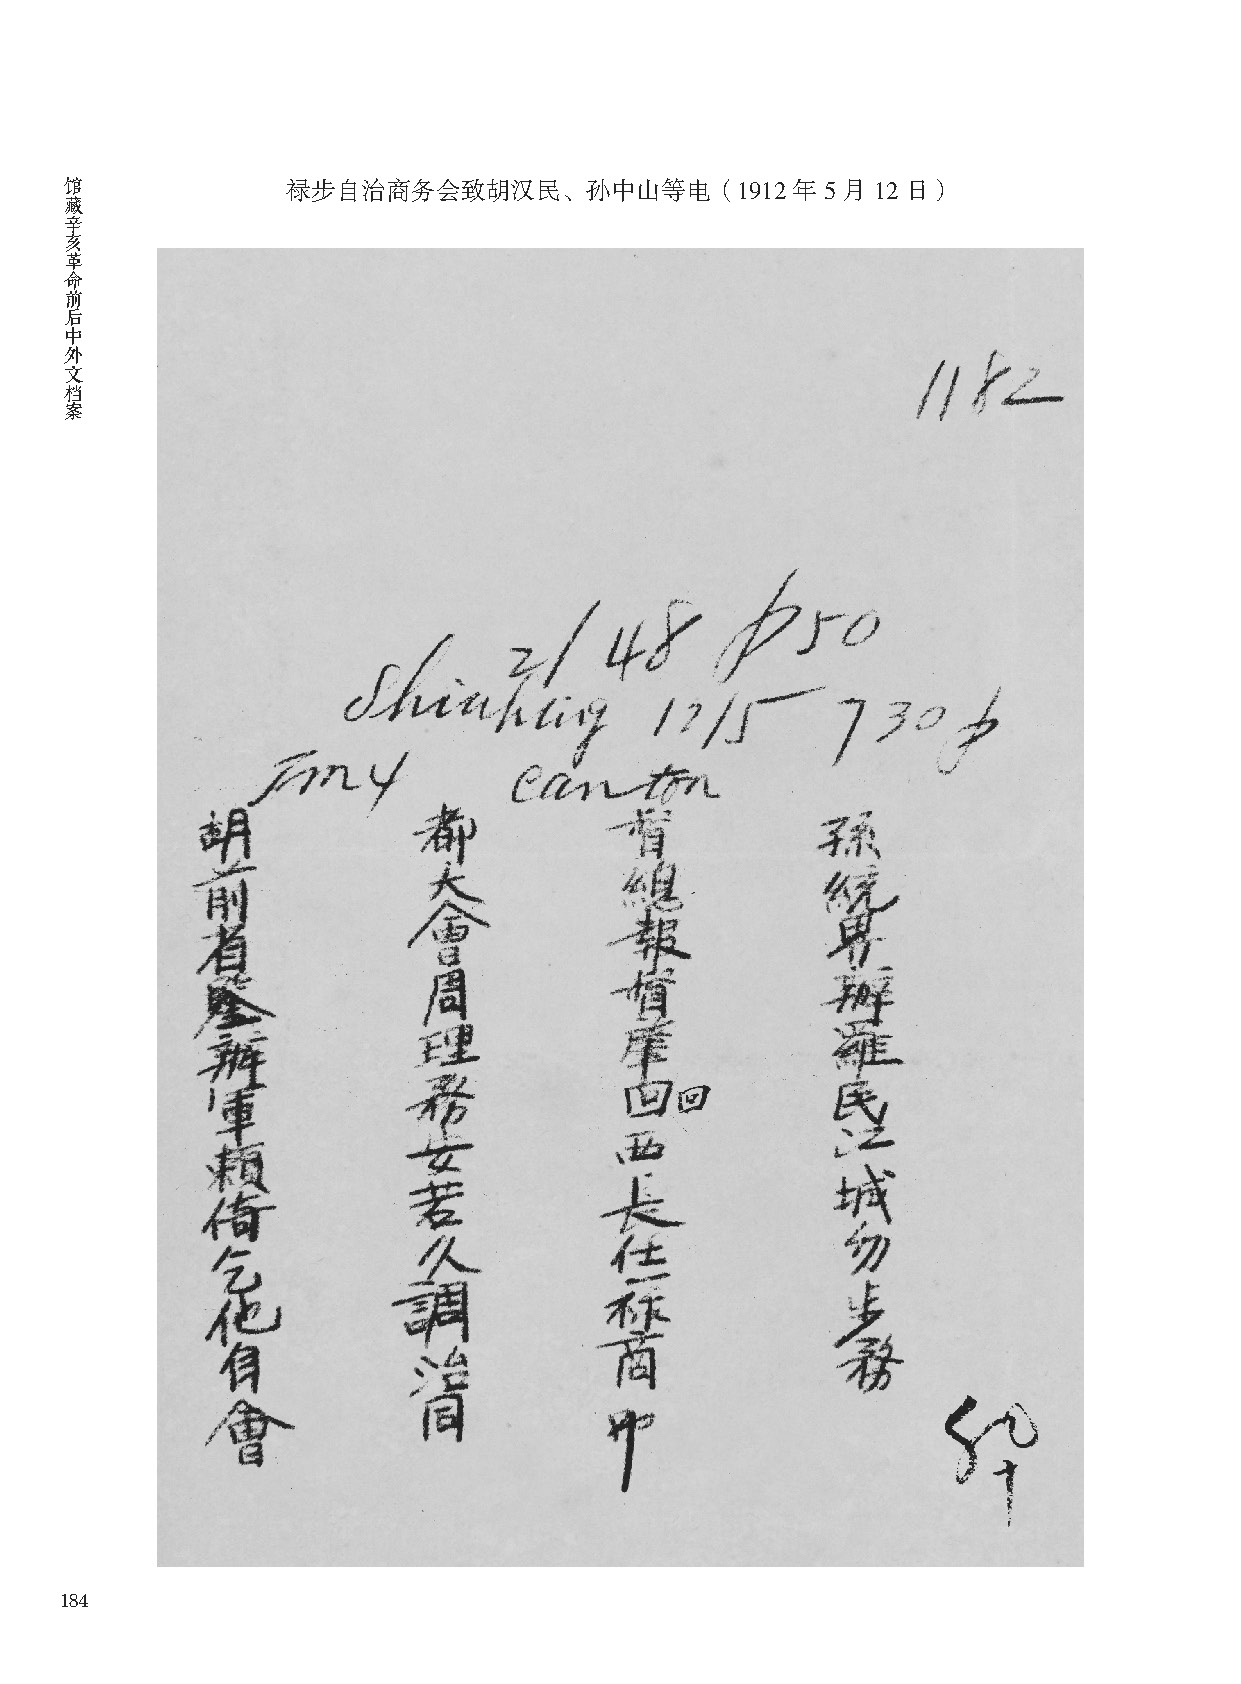 禄步自治商务会致胡汉民、孙中山等电（1912年5月12日）
馆藏辛亥革命前后中外文档案
1182
2/48 p50
Shiuhing 12/5 730p
Canton
胡都督孫
前大總統
省會報界
鑒周督辦
辦理肇羅
軍務回回民
賴安西江
倚若長城
乞久任勿
他調祿步
自治商務
會同叩
184